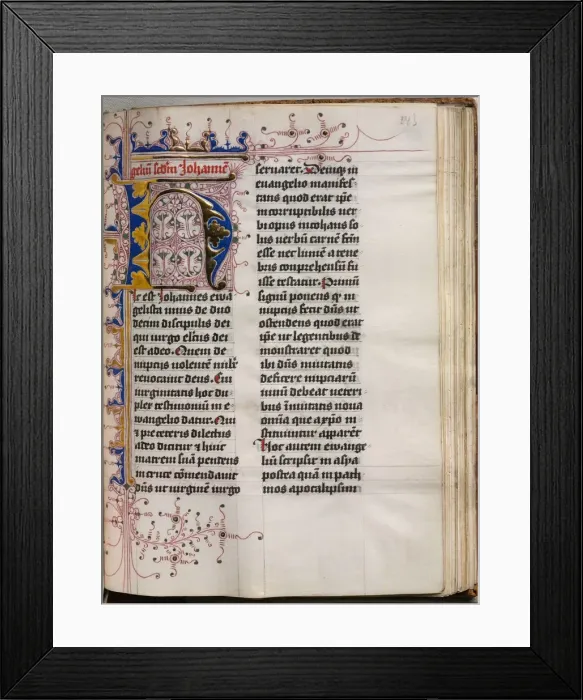 geliū scdm Johannē
Hic est Johannes ewa
gelista unus de duo
decim discipulis dei
qui uirgo elcūs dei
est adeo. Quem de
nuptiis uolentē nub̄e
reuocauit deus. Cui
uirginitatis hoc du
plex testimoniū in e
wangelio datur. Qui
& pre ceteris dilectus
adeo dicitur & huic
matrem suā pendens
in cruce cōmendauit
dn̄s ut uirginē uirgo
seruaret. Deniq; in
euangelio manifes
tans quod erat ip̄e
in corruptibilis uer
bi opus inchoans so
lus uerbū carnē fc̄m
esse nec lumē a tene
bris comprehensū fu
isse testatur. Primū
signū ponens qd in
nuptiis fecit dn̄s ut
ostendens quod erat
ip̄e ut legentibus de
monstraret quod
ibi dn̄s inuitatus
deficere nupciarū
uinū debeat ueteri
bus īmutatis noua
omnia que a xp̄o in
stituuntur appareāt
Hoc autem ewange
liū scripsit in asya
postea quā in path
mos apocalipsim